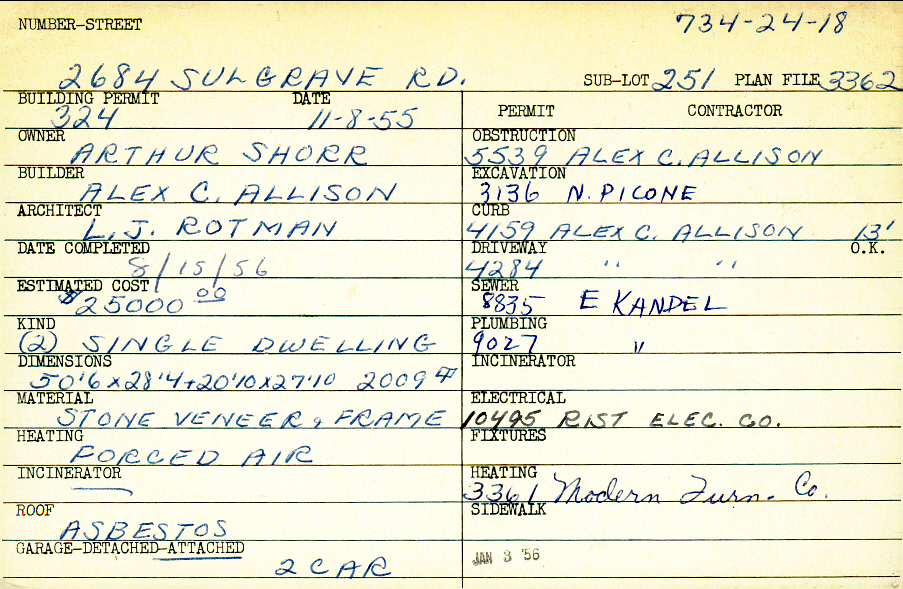 NUMBER-STREET 734-24-18
2684 SULGRAVE RD. SUB-LOT 251 PLAN FILE 3362
BUILDING PERMIT DATE
324 11-8-55
OWNER
ARTHUR SHORR
BUILDER
ALEX C. ALLISON
ARCHITECT
L. J. ROTMAN
DATE COMPLETED
8/15/56
ESTIMATED COST
$25000 00
KIND
(2) SINGLE DWELLING
DIMENSIONS
50'6 x 28'4 + 20'10 x 27'10 2009
MATERIAL
STONE VENEER, FRAME
HEATING
FORCED AIR
INCINERATOR
ROOF
ASBESTOS
GARAGE-DETACHED-ATTACHED
2 CAR
PERMIT CONTRACTOR
OBSTRUCTION
5539 ALEX C. ALLISON
EXCAVATION
3136 N. PICONE
CURB
4159 ALEX C. ALLISON 13'
DRIVEWAY O.K.
4284 " "
SEWER
8835 E KANDEL
PLUMBING
9027 "
INCINERATOR
ELECTRICAL
10495 RIST ELEC. CO.
FIXTURES
HEATING
3361 Modern Furn. Co.
SIDEWALK
JAN 3 '56